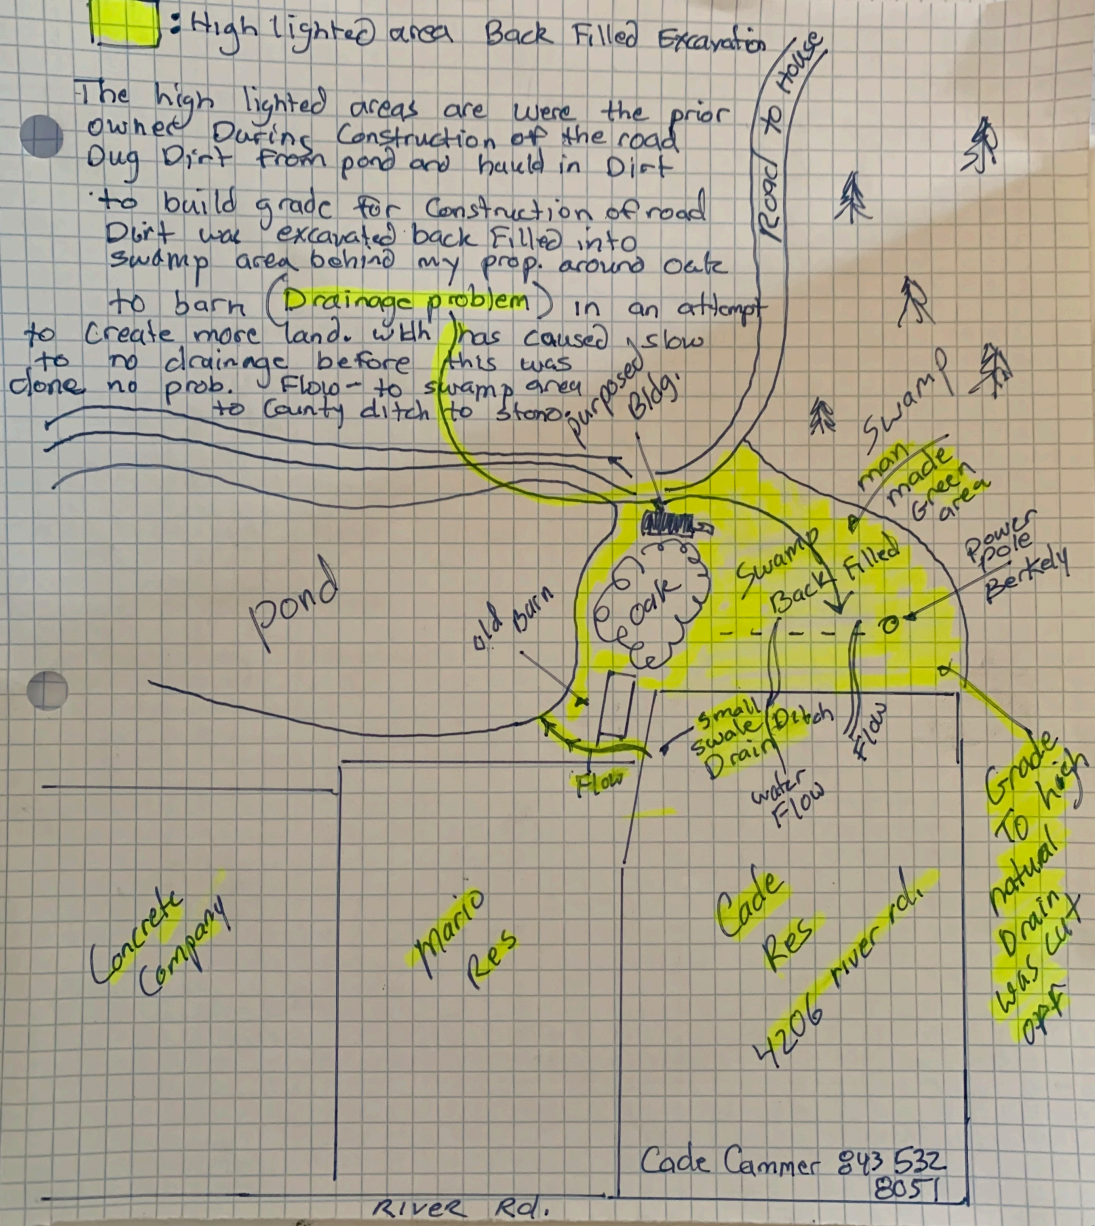 : High lighted area Back Filled Excavation
The high lighted areas are were the prior
owner During Construction of the road
Dug Dirt from pond and hauld in Dirt
to build grade for Construction of road
Dirt was excavated back Filled into
swamp area behind my prop. around oak
to barn (Drainage problem) in an attempt
to create more land. with has caused slow
to no drainage before this was
done no prob. Flow - to swamp area
to County ditch to stono.
Road to House
purposed
Bldg.
Swamp
man
made
Green
area
power
pole
Berkely
Swamp
Back Filled
oak
pond
old Barn
Small
swale Ditch
Drain
Flow
water
Flow
Flow
Grade
To high
natural
Drain
was cut
off
Concrete
Company
Mario
Res
Cade
Res
4206 river rd.
Cade Cammer 843 532
8051
RIVER Rd.